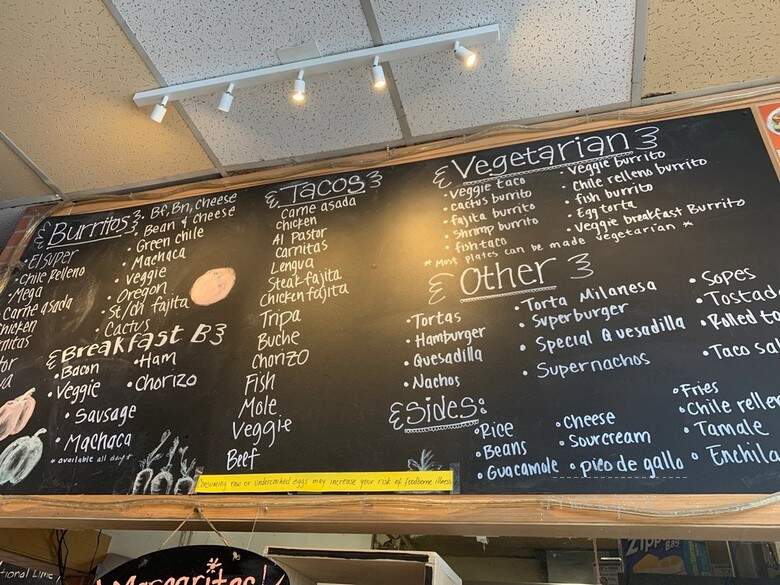 Burritos
El Super
Chile Relleno
Mega
Carne asada
Chicken
Bf, Bn, cheese
Bean & cheese
Green chile
Machaca
Veggie
Oregon
St/ch fajita
Cactus
Breakfast B
Bacon
Veggie
Sausage
Machaca
Ham
Chorizo
*available all day*
Tacos
Carne asada
Chicken
Al Pastor
Carnitas
Lengua
Steak fajita
Chicken fajita
Tripa
Buche
Chorizo
Fish
Mole
Veggie
Beef
Vegetarian
Veggie taco
cactus burrito
fajita burrito
Shrimp burrito
fish taco
Veggie burrito
Chile relleno burrito
fish burrito
Egg torta
Veggie breakfast Burrito
*Most plates can be made vegetarian*
Other
Tortas
Hamburger
Quesadilla
Nachos
Torta Milanesa
Superburger
Special Quesadilla
Supernachos
Sopes
Tostad
Rolled
Taco
Sides:
Rice
Beans
Guacamole
cheese
Sourcream
pico de gallo
Fries
Chile
Tamale
raw or undercooked eggs may increase your risk of foodborne illness
Margaritas!